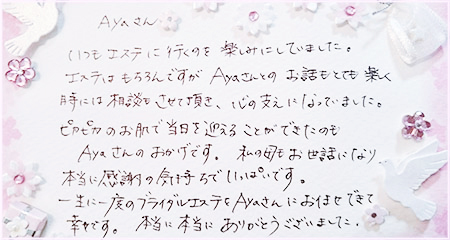 Ayaさん
いつもエステに行くのを楽しみにしていました。
エステはもちろんですが Ayaさんとの お話もとても楽しく
時には相談もさせて頂き、心の支えになっていました。
ピカピカのお肌で当日を迎えることができたのも
Ayaさんのおかげです。 私の母もお世話になり、
本当に感謝の気持ちでいっぱいです。
一生に一度のブライダルエステをAyaさんにお任せできて
幸せです。 本当に本当に ありがとうございました。